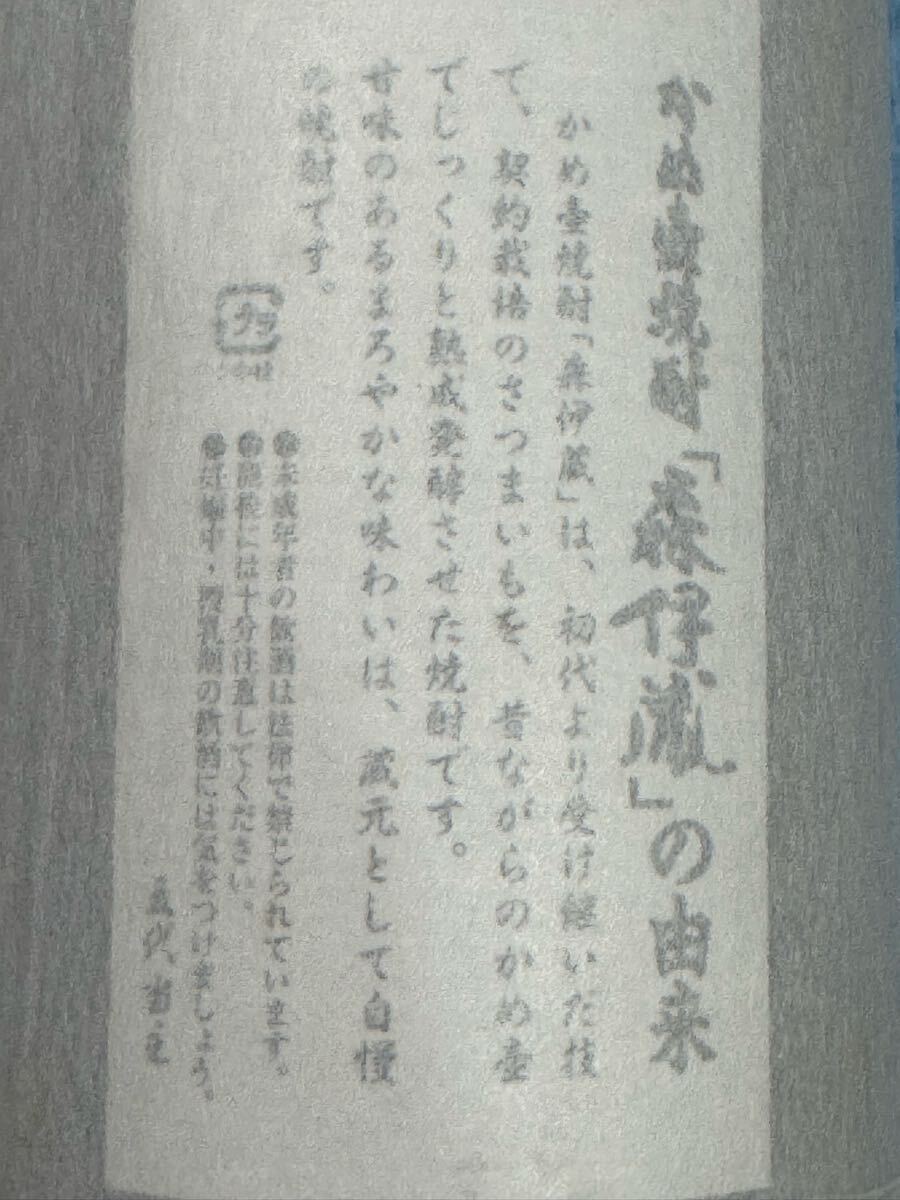 かめ壷焼酎「森伊蔵」の由来
かめ壷焼酎「森伊蔵」は、初代より受け継いだ技
て、契約栽培のさつまいもを、昔ながらのかめ壷
でじっくりと熟成発酵させた焼酎です。
甘味のあるまろやかな味わいは、蔵元として自慢
の焼酎です。
プラ
●未成年者の飲酒は法律で禁じられています。
●開栓には十分注意してください。
●妊娠中・授乳期の飲酒には気をつけましょう。
五代当主